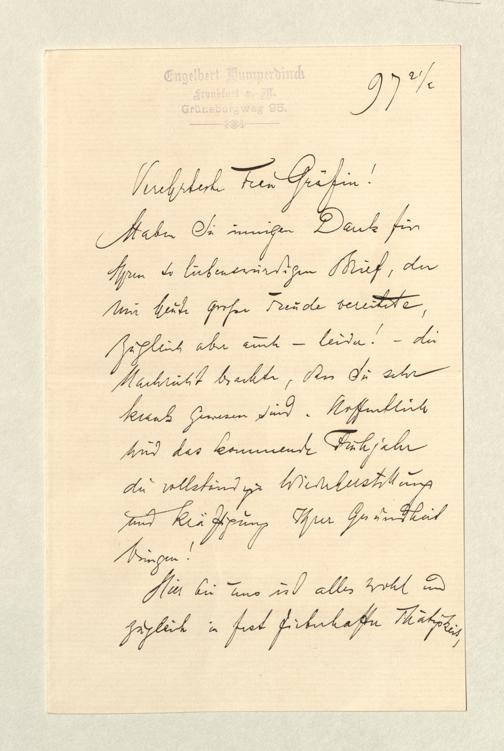 Engelbert Humperdinck
Frankfurt a. M.
Grüneburgweg 95.
97 21/2
Verehrteste Frau Gräfin!
Haben Sie innigen Dank für
Ihren so liebenswürdigen Brief, der
mir heute große Freude bereitete,
zugleich aber auch – leider! – die
Nachricht brachte, dass Sie sehr
krank gewesen sind. Hoffentlich
wird das kommende Frühjahr
die vollständige Wiederherstellung
und Kräftigung Ihrer Gesundheit
bringen!
Hier bei uns ist alles wohl und
zugleich in fast fieberhafter Thätigkeit,